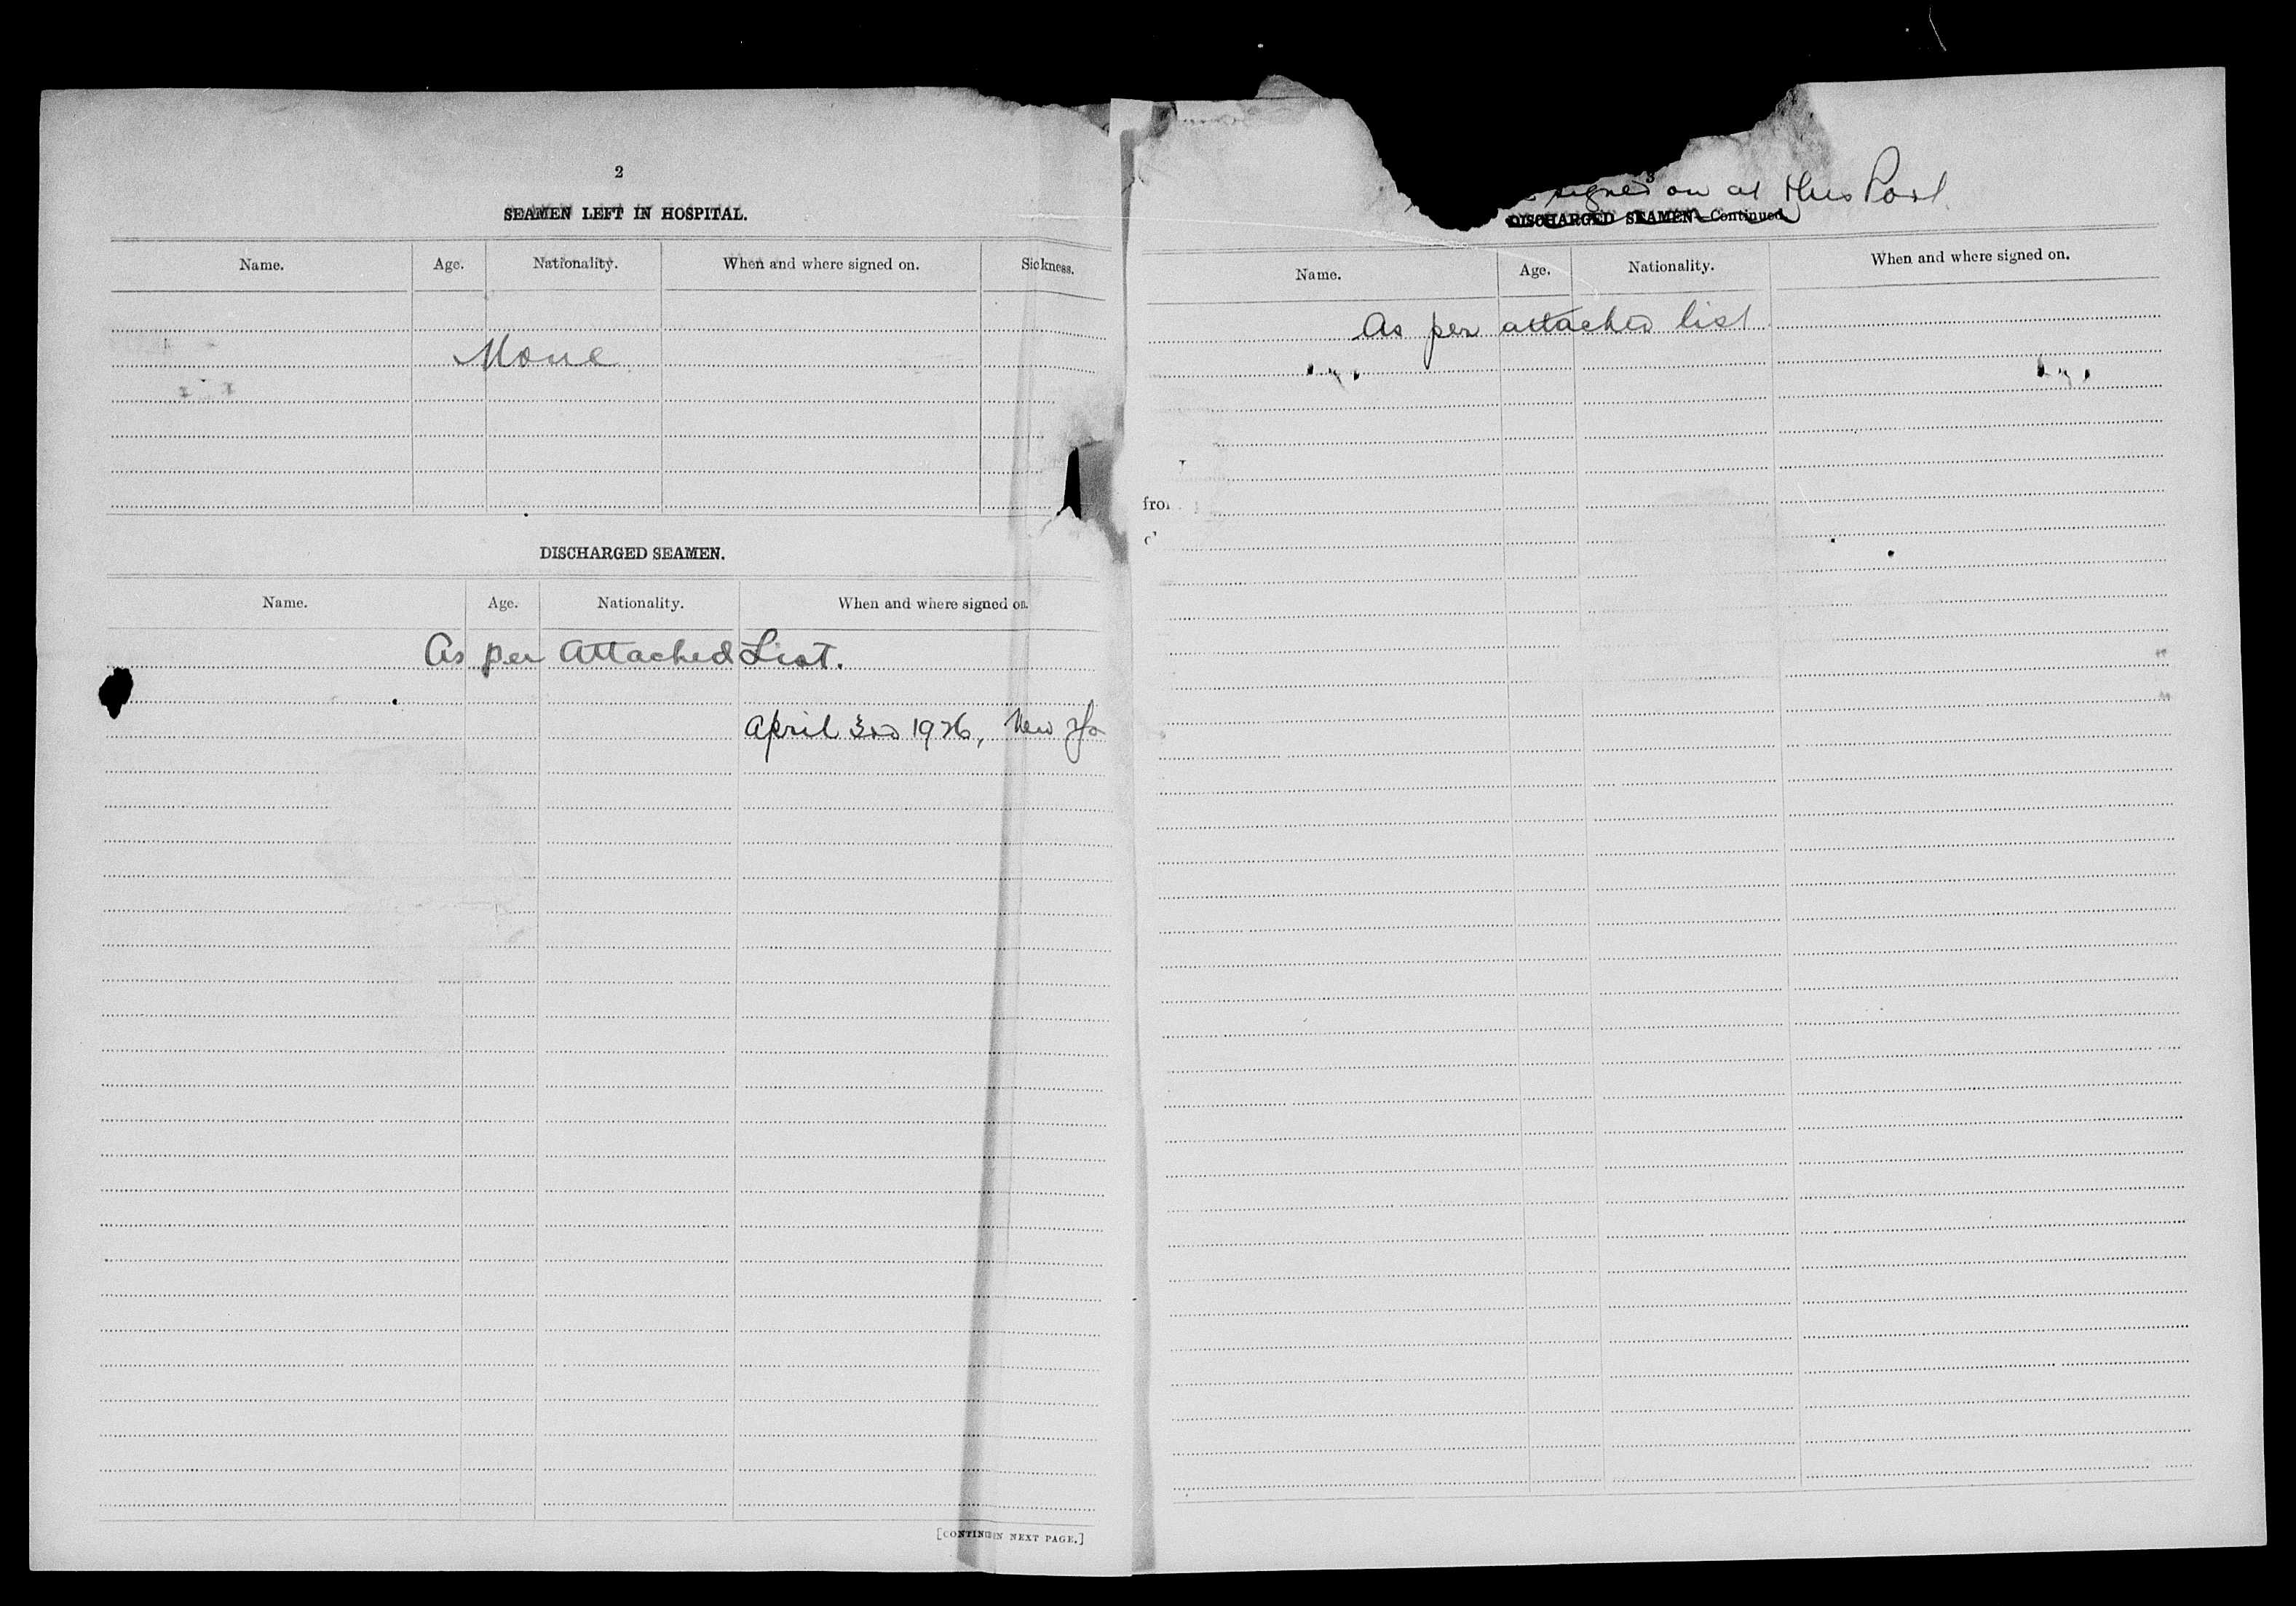 2
SEAMEN LEFT IN HOSPITAL.
Name. Age. Nationality. When and where signed on. Sickness.
None
DISCHARGED SEAMEN.
Name. Age. Nationality. When and where signed on.
As per Attached List.
April 3rd 1926, New Yo
[CONTINU IN NEXT PAGE.]
3
signed on at this Port
DISCHARGED SEAMEN—Continued
Name. Age. Nationality. When and where signed on.
As per attached list
fro